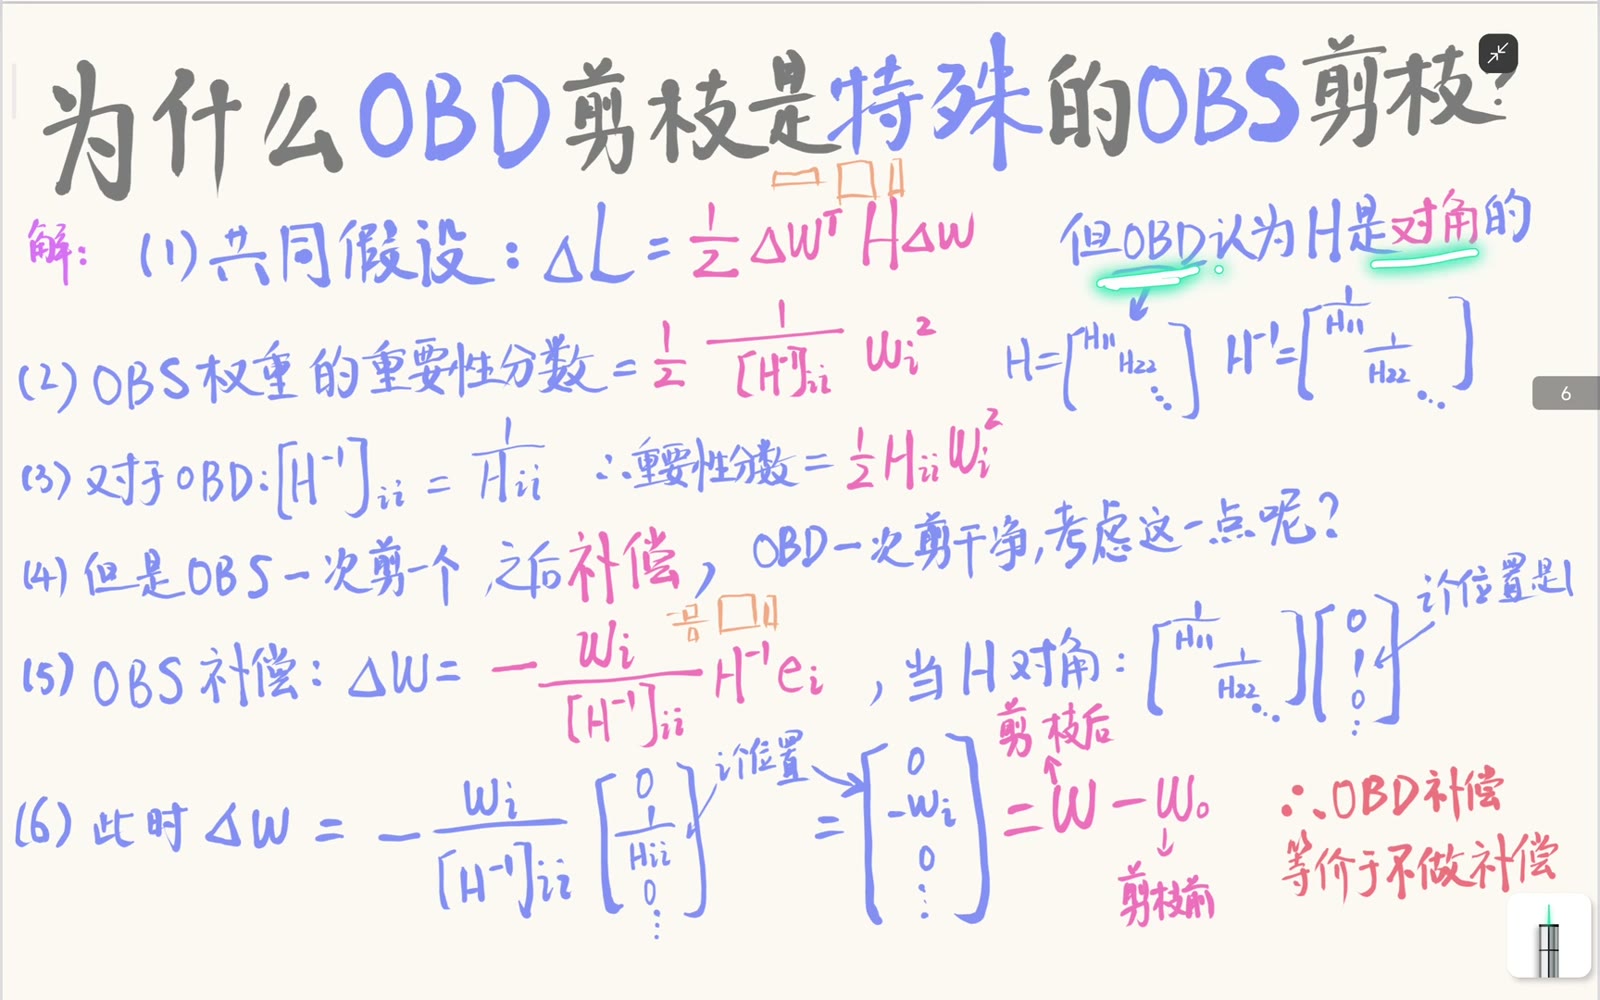 为什么OBD剪枝是特殊的OBS剪枝?
解: (1)共同假设: ΔL = 1/2 ΔWᵀHΔW 但OBD认为H是对角的
(2) OBS权重的重要性分数 = 1/2 1/[H⁻¹]ii Wi² H=[H11 H22 ⋱] H⁻¹=[1/H11 1/H22 ⋱]
6
(3) 对于OBD: [H⁻¹]ii = 1/Hii ∴重要性分数 = 1/2 Hii Wi²
(4) 但是OBS一次剪一个 之后补偿, OBD一次剪干净,考虑这一点呢?
(5) OBS补偿: ΔW= - Wi/[H⁻¹]ii H⁻¹ei , 当H对角: [1/H11 1/H22 ⋱][0 1 0 ⋮] i个位置是1
(6) 此时ΔW = - Wi/[H⁻¹]ii [0 1/Hii 0 ⋮] i个位置 = [0 -Wi 0 ⋮] = W - W₀
剪枝后
剪枝前
∴OBD补偿
等价于不做补偿